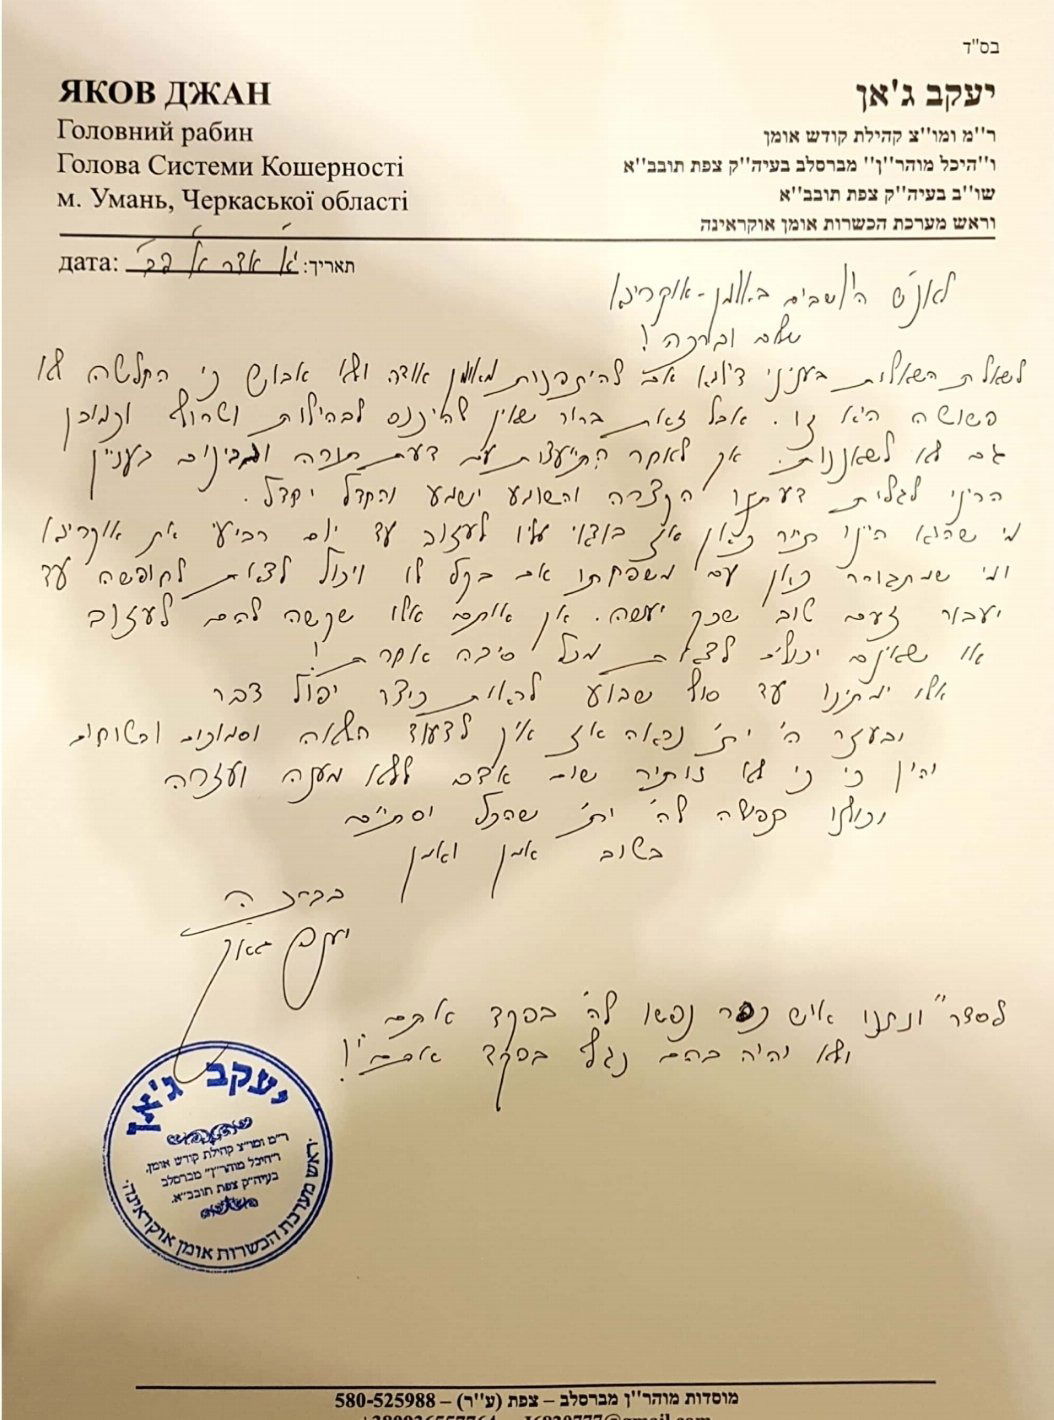 בס"ד
ЯКОВ ДЖАН
Головний рабин
Голова Системи Кошерності
м. Умань, Черкаської області
יעקב ג'אן
ר''מ ומו''צ קהילת קודש אומן
ו''היכל מוהר''ן'' מברסלב בעיה''ק צפת תובב''א
שו''ב בעיה''ק צפת תובב''א
וראש מערכת הכשרות אומן אוקראינה
дата: תאריך: י"א אדר א'
לאנ"ש היושבים באומן - אוקרינא
שלום וברכה!
לשאלת השאלות בעניני דיומא אם להתפנות מאומן אודה ולא אבוש כי הקלשה לא
פשוטה היא זו. אבל זאת ברור שאין להיכנס לבהילות ושהוץ וכמובן
גם לא לשאננות. אך לאחר התייעצות עם דעת תורה ומבינים בעניין
הריני לגלות דעתנו הקצרה והשומע ישמע והחדל יחדל.
מי שהוא הינו תייר כאן אז בודאי עליו לעזוב עד יום רביעי את אוקרינא
ומי שמתגורר כאן עם משפחתו אם בקל לו ויכול לצאת לחופשה עד
יעבור זעם טוב שכך יעשה. אך אותם אלו שקשה להם לעזוב
או שאינם יכולים לצאת מכל סיבה אחרת!
אלו ימתינו עד סוף שבוע לראות כיצד יפול דבר
ובעזר ה' ית' נראה אז איך לצעוד הלאה וסמוכים ובטוחים
והין כי כי לא נותיר שום אדם ללא מענה ועזרה
וכולנו תפילה לה' ית' שהכל יסתיים
בטוב אמן ואמן
בברכה
יעקב ג'אן
לסדר "ונתנו איש כפר נפשו לה' בפקד אתם
ולא יהיה בהם נגף בפקד אתם"!
יעקב ג'אן
ר''מ ומו''צ קהילת קודש אומן,
ו'היכל מוהר''ן' מברסלב
בעיה''ק צפת תובב''א.
ראש מערכת הכשרות אומן אוקראינה
מוסדות מוהר''ן מברסלב – צפת (ע''ר) – 580-525988